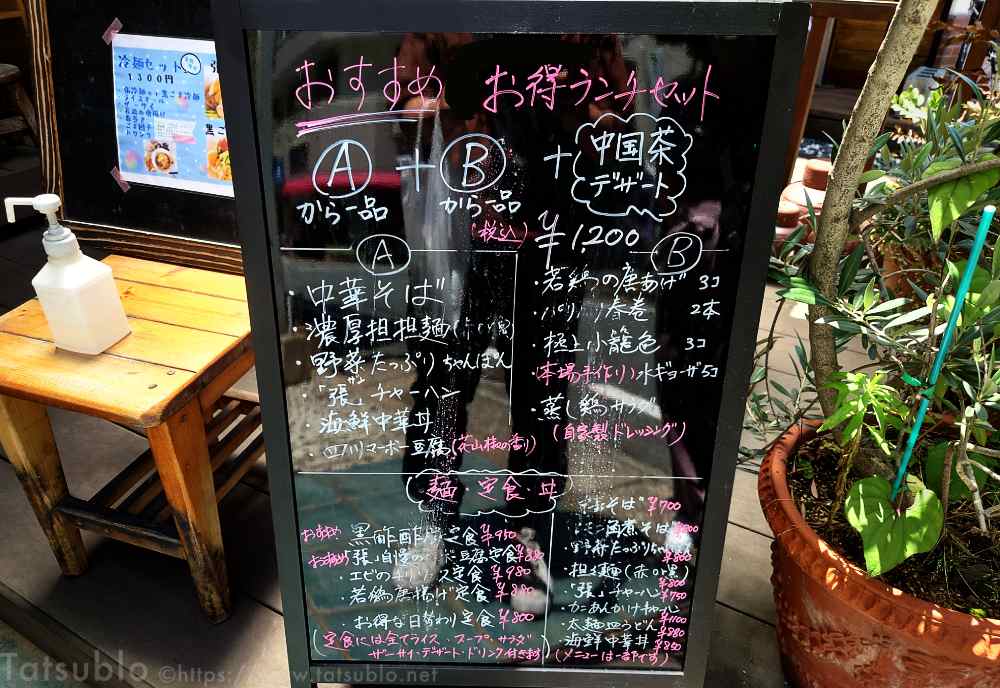 冷麺セット
1300円
おすすめ お得ランチセット
A + B + 中国茶
デザート
から一品 から一品
(税込) ¥1,200
A
・中華そば
・濃厚担担麺
・野菜たっぷりちゃんぽん
・「張」チャーハン
・海鮮中華丼
・四川マーボー豆腐(花山椒の香り)
B
・若鶏の唐あげ 3コ
春巻 2本
・極上小籠包 3コ
・(本場手作り)水ギョーザ5コ
・蒸し鶏サラダ
(自家製ドレッシング)
麺・定食・丼
おすすめ 黒酢酢豚定食 ¥950
おすすめ 張自慢の 豆腐定食 ¥880
・エビのチリソース定食 ¥980
・若鶏唐揚げ定食
・お得な日替わり定食 ¥800
(定食には全てライス・スープ・サラダ
ザーサイ・デザート・ドリンク付きます)
¥700
角煮そば
野菜たっぷり
・担担麺(赤or黒)
¥800
・「張」チャーハン ¥750
・カニあんかけチャーハン
¥1100
・太麺皿うどん ¥880
・海鮮中華丼 ¥850
(メニューは一部です)
Tatsublo ©https://www.tatsublo.net